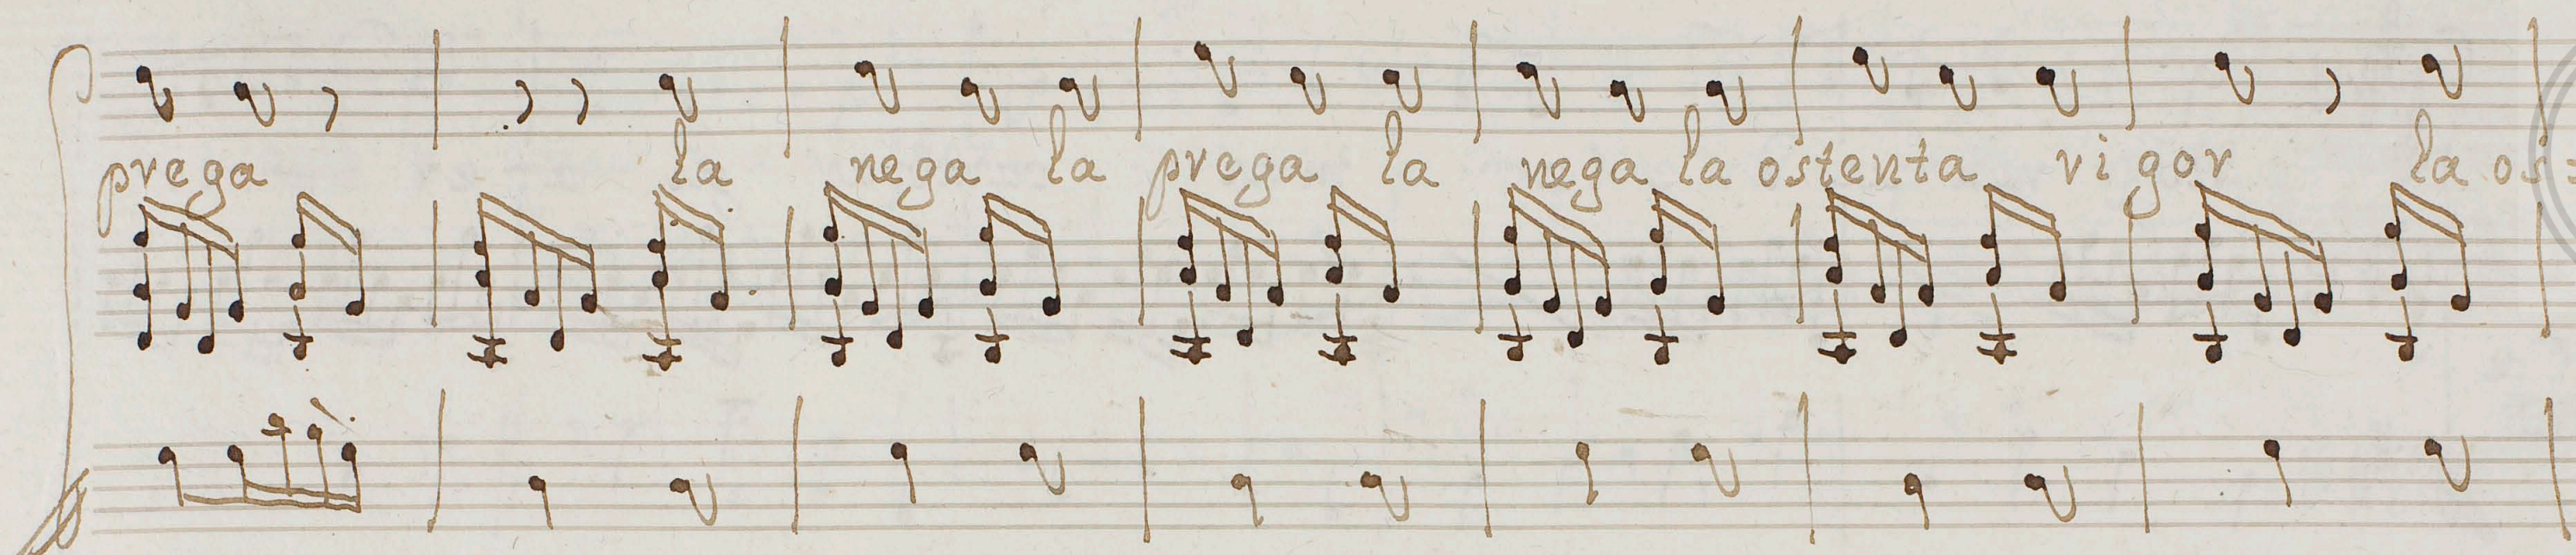 prega la nega la prega la nega la ostenta rigor la os